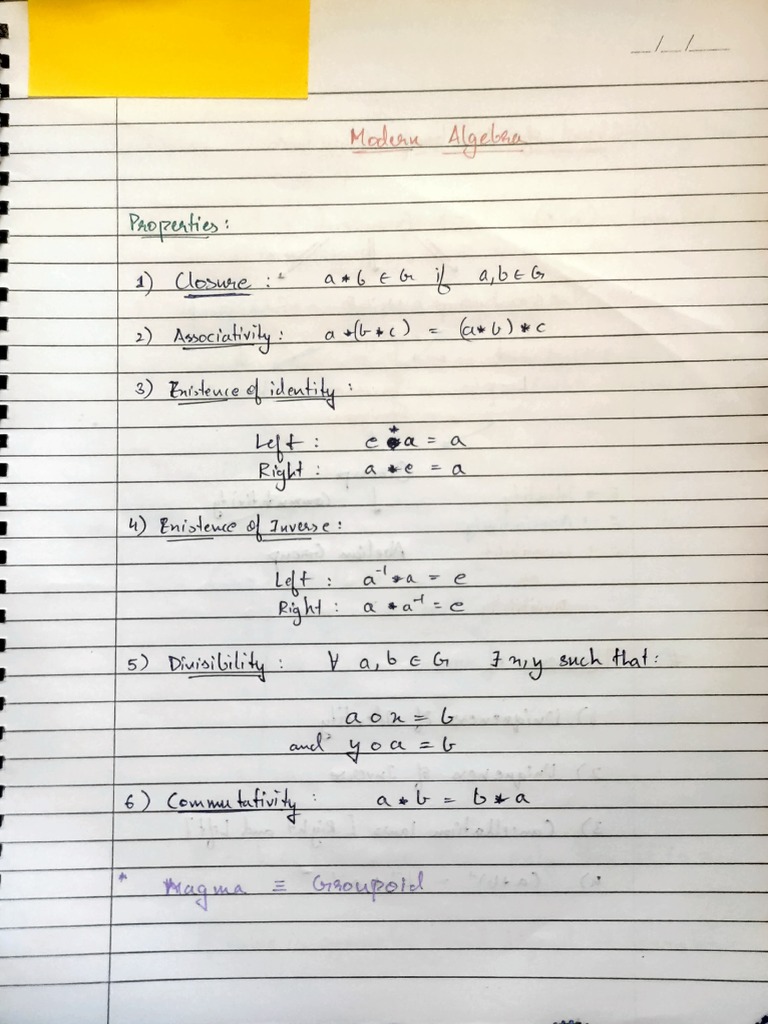 _/_/_
Modern Algebra
Properties:
1) Closure :- a * b ∈ G if a, b ∈ G
2) Associativity : a *(b * c) = (a * b) * c
3) Existence of identity :
Left : e * a = a
Right : a * e = a
4) Existence of Inverse :
Left : a⁻¹ * a = e
Right : a * a⁻¹ = e
5) Divisibility : ∀ a, b ∈ G ∃ x, y such that :
a o x = b
and y o a = b
6) Commutativity : a * b = b * a
* Magma ≡ Groupoid